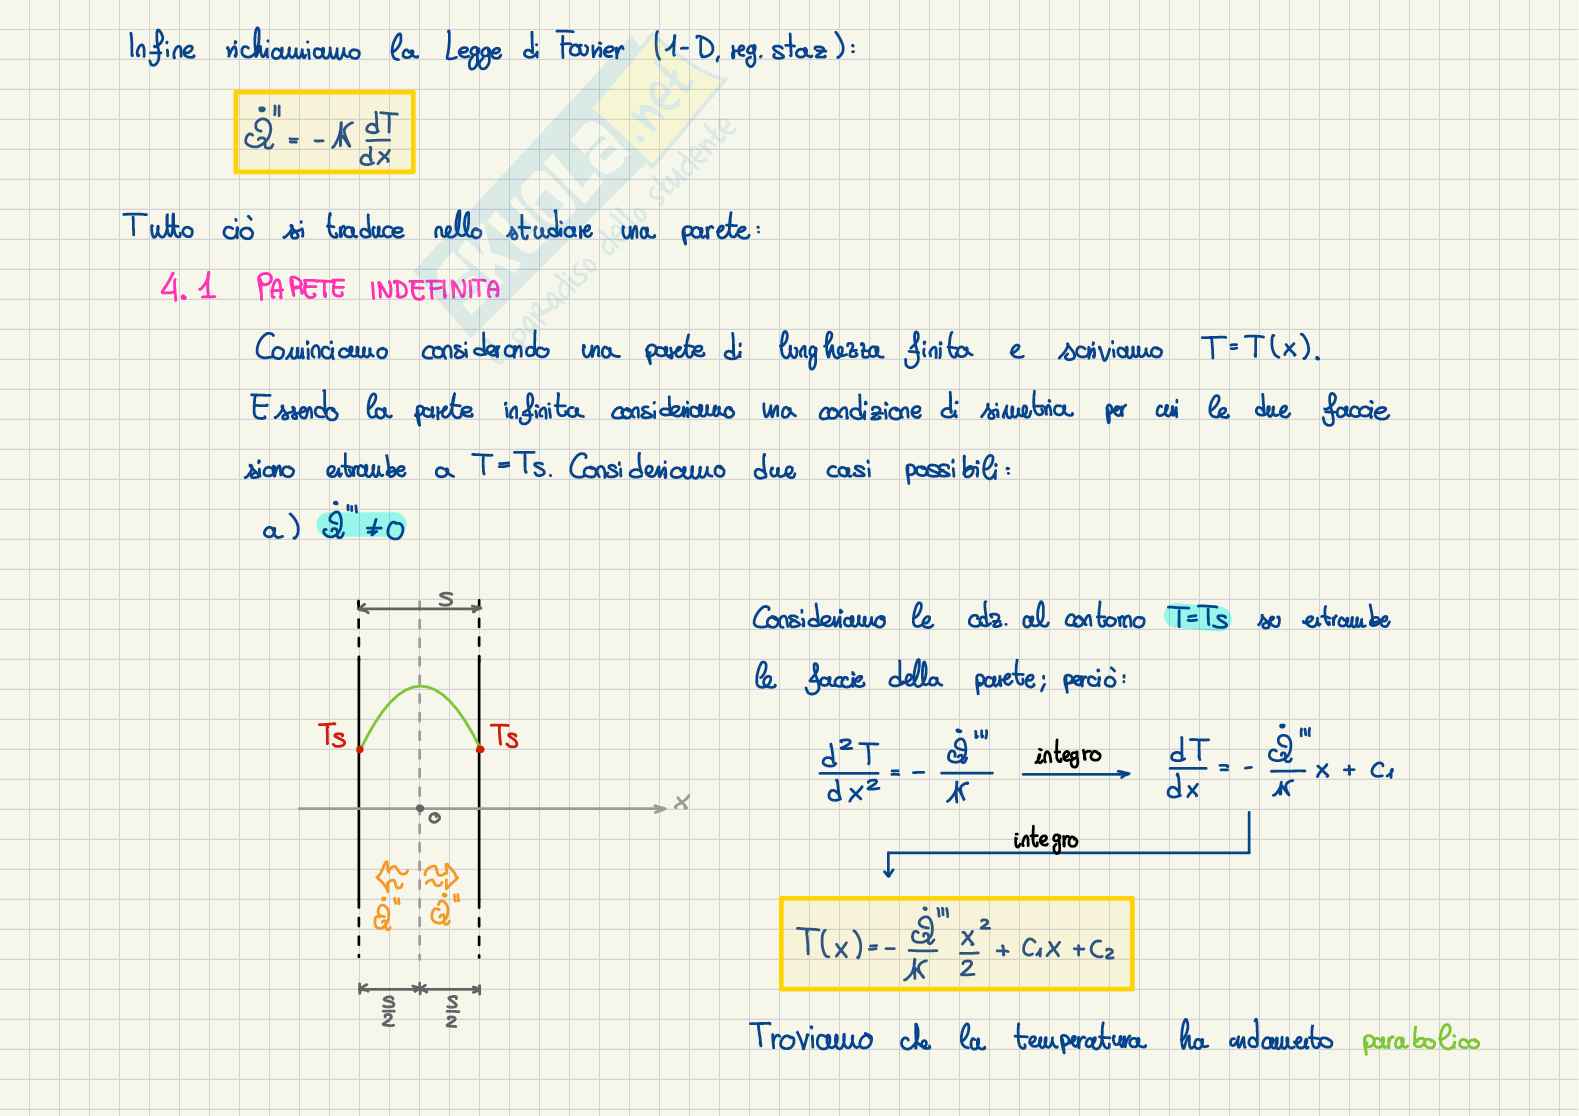 Infine richiamiamo la Legge di Fourier (1-D, reg. staz):
Q̇" = - K dT/dx
Tutto ciò si traduce nello studiare una parete:
4.1 PARETE INDEFINITA
Cominciamo considerando una parete di lunghezza finita e scriviamo T=T(x).
Essendo la parete infinita consideriamo una condizione di simetria per cui le due faccie
siano entrambe a T=Ts. Consideriamo due casi possibili:
a) Q̇''' ≠ 0
s
Ts Ts
x
o
Q̇" Q̇"
s/2 s/2
Consideriamo le cdz. al contorno T=Ts su entrambe
le faccie della parete; perciò:
d²T/dx² = - Q̇'''/K integro dT/dx = - Q̇'''/K x + C1
integro
T(x) = - Q̇'''/K x²/2 + C1x + C2
Troviamo che la temperatura ha andamento parabolico
skuola.net
paradiso dello studente